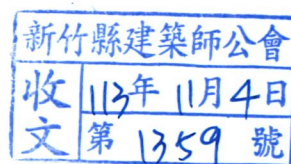 新竹縣建築師公會
收文
113年11月4日
第1359號